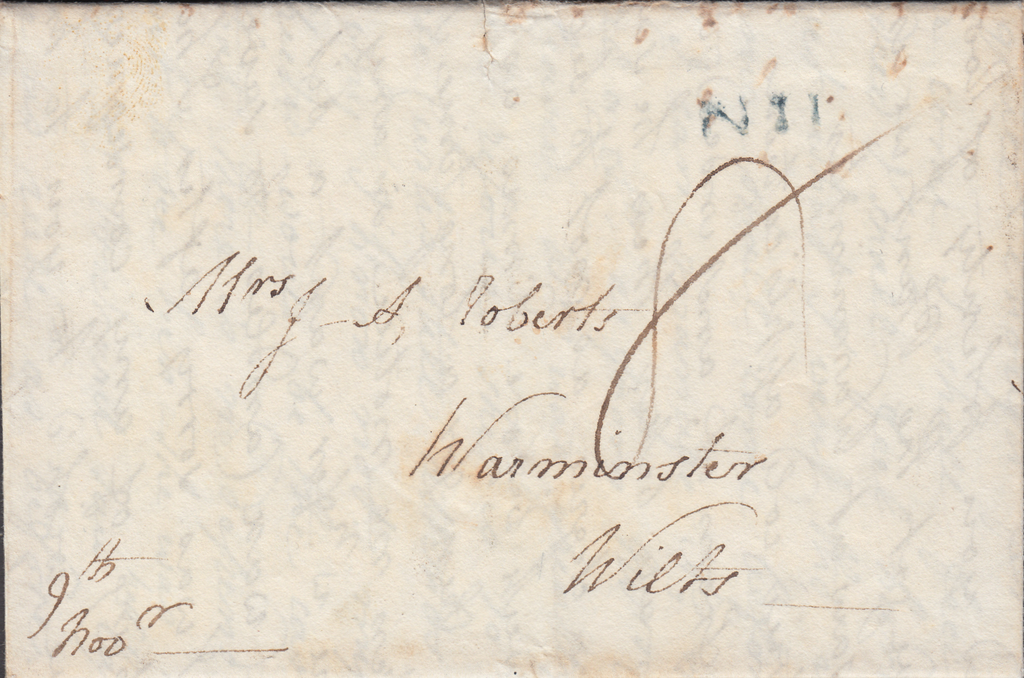 N 11
Mrs J A, Roberts
Warminster
Wilts
9th
Novr